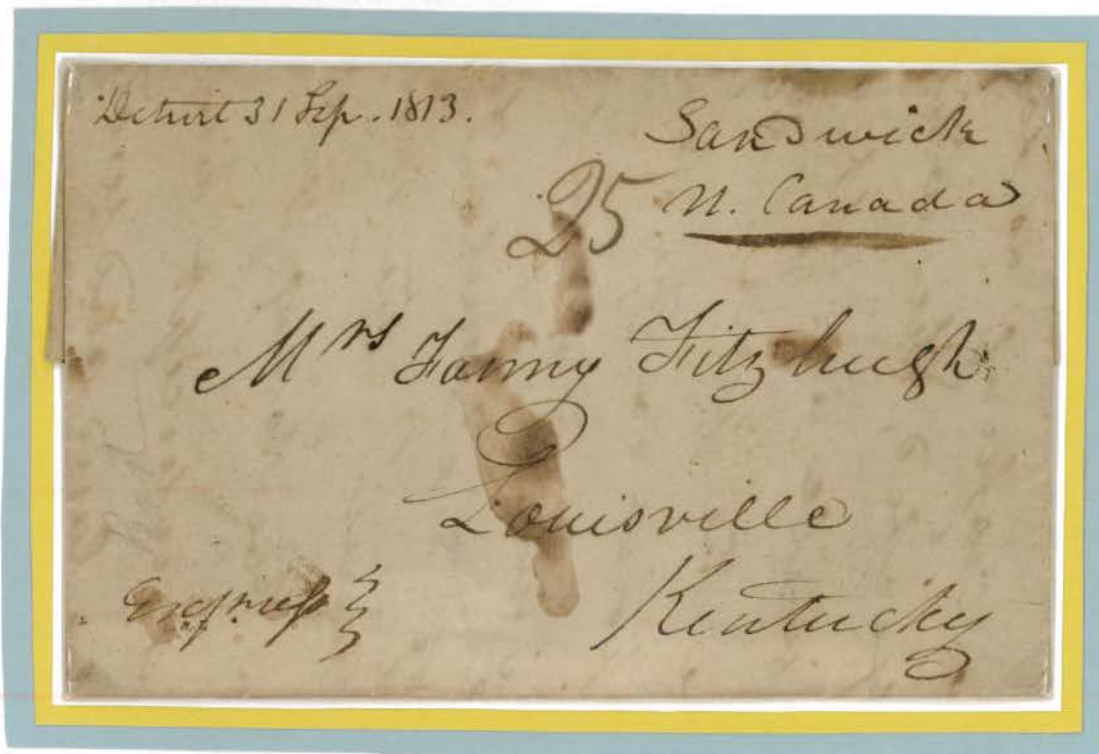 Detroit 31 Sep. 1813.
Sandwich
U. Canada
25
Mrs Fanny Fitzhugh
Louisville
Kentucky
Express